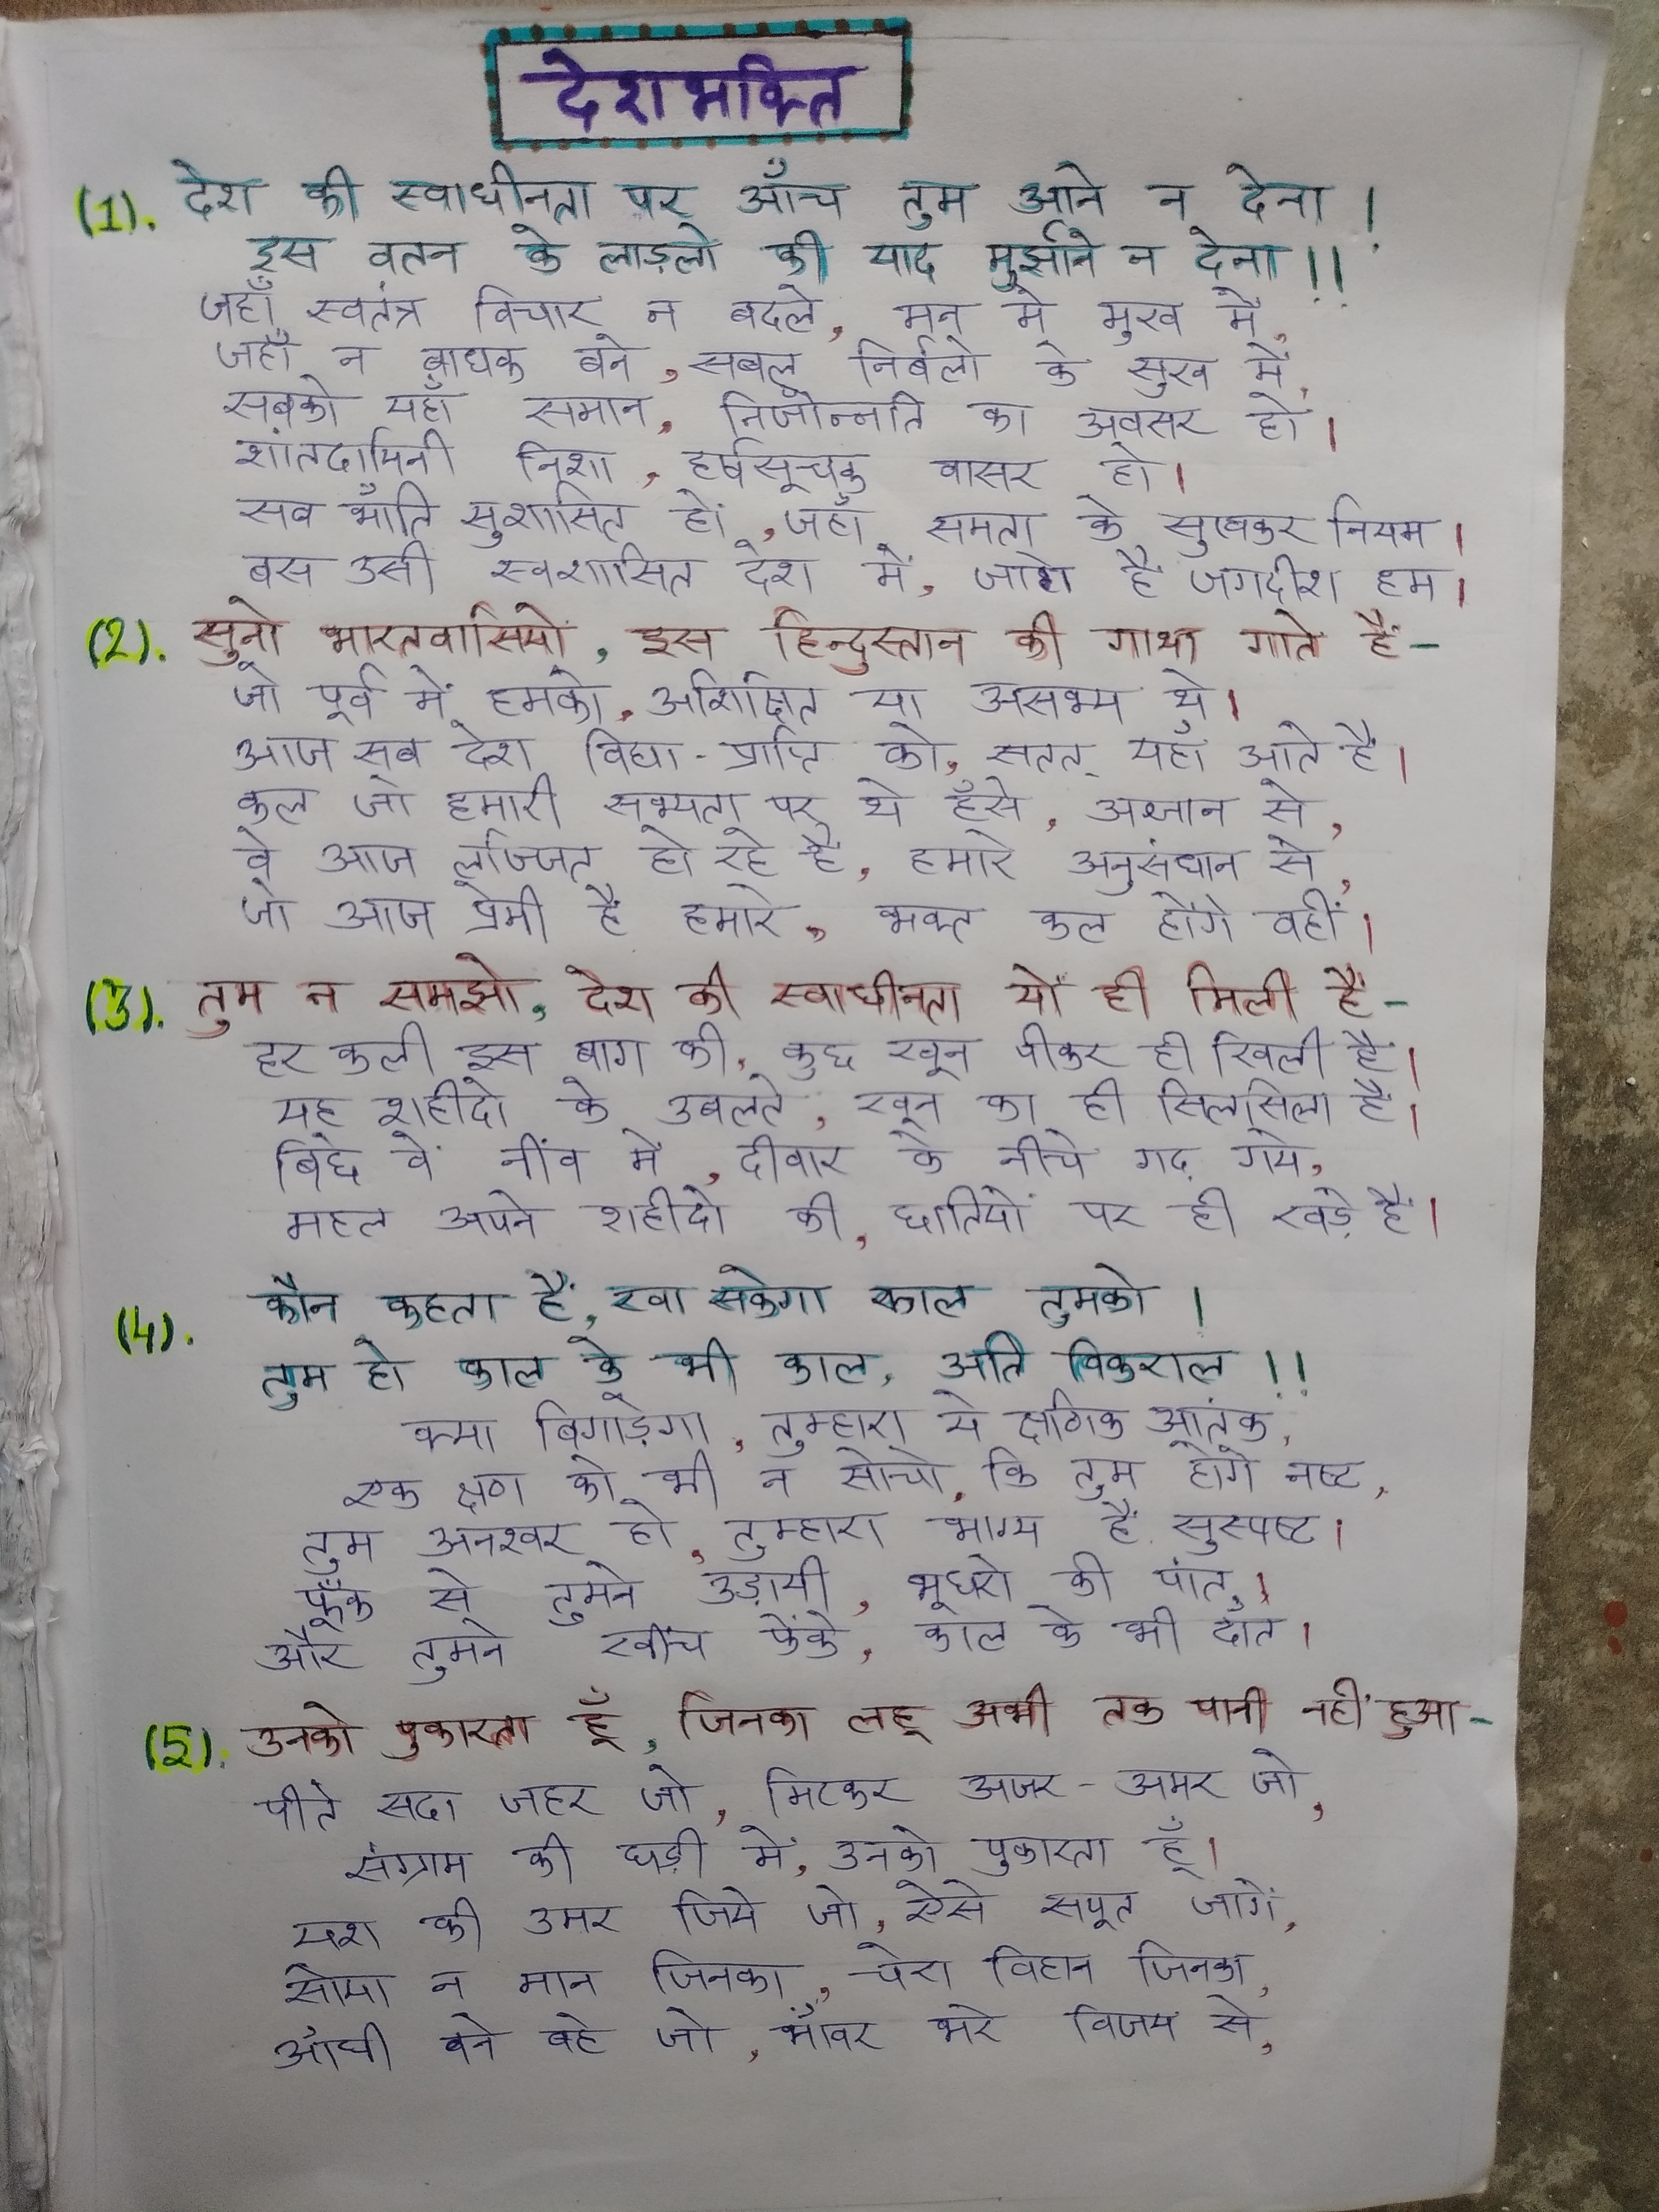 देशभक्ति
(1). देश की स्वाधीनता पर आँच तुम आने न देना !
इस वतन के लाड़लो की याद मुर्झाने न देना !!
जहाँ स्वतंत्र विचार न बदले, मन मे मुख में,
जहाँ न बाधक बने, सबल निर्बलो के सुख में,
सबको यहाँ समान, निजोन्नति का अवसर हो।
शांतदायिनी निशा, हर्षसूचक वासर हो।
सब भाँति सुशासित हों, जहाँ समता के सुखकर नियम।
बस उसी स्वशासित देश में, जागे है जगदीश हम।
(2). सुनो भारतवासियो, इस हिन्दुस्तान की गाथा गाते हैं-
जो पूर्व में हमको, अशिक्षित या असभ्य थे।
आज सब देश विद्या-प्राप्ति को, सतत् यहाँ आते हैं।
कल जो हमारी सभ्यता पर थे हँसे, अज्ञान से,
वे आज लज्जित हो रहे हैं, हमारे अनुसंधान से,
जो आज प्रेमी हैं हमारे, भक्त कल होंगे वहीं।
(3). तुम न समझो, देश की स्वाधीनता यों ही मिली हैं-
हर कली इस बाग की, कुछ खून पीकर ही खिली हैं।
यह शहीदो के उबलते, खून का ही सिलसिला हैं।
बिछे वें नींव में, दीवार के नीचे गढ़ गये,
महल अपने शहीदो की, छातियों पर ही खड़े हैं।
(4). कौन कहता हैं, खा सकेगा काल तुमको।
तुम हो काल के भी काल, अति विकराल !!
क्या बिगाड़ेगा, तुम्हारा ये क्षणिक आतंक,
एक क्षण को भी न सोचो, कि तुम होंगे नष्ट,
तुम अनश्वर हो, तुम्हारा भाग्य हैं सुस्पष्ट।
फूँक से तुमने उड़ायी, भूधरो की पांत,।
और तुमने खींच फेंके, काल के भी दाँत।
(5). उनको पुकारता हूँ, जिनका लहू अभी तक पानी नहीं हुआ-
पीते सदा जहर जो, मिटकर अजर-अमर जो,
संग्राम की घड़ी में, उनको पुकारता हूँ।
यश की उमर जिये जो, ऐसे सपूत जागें,
सोया न मान जिनका, चेरा विहान जिनका,
आँधी बने बहे जो, भाँवर भरे विजय से,